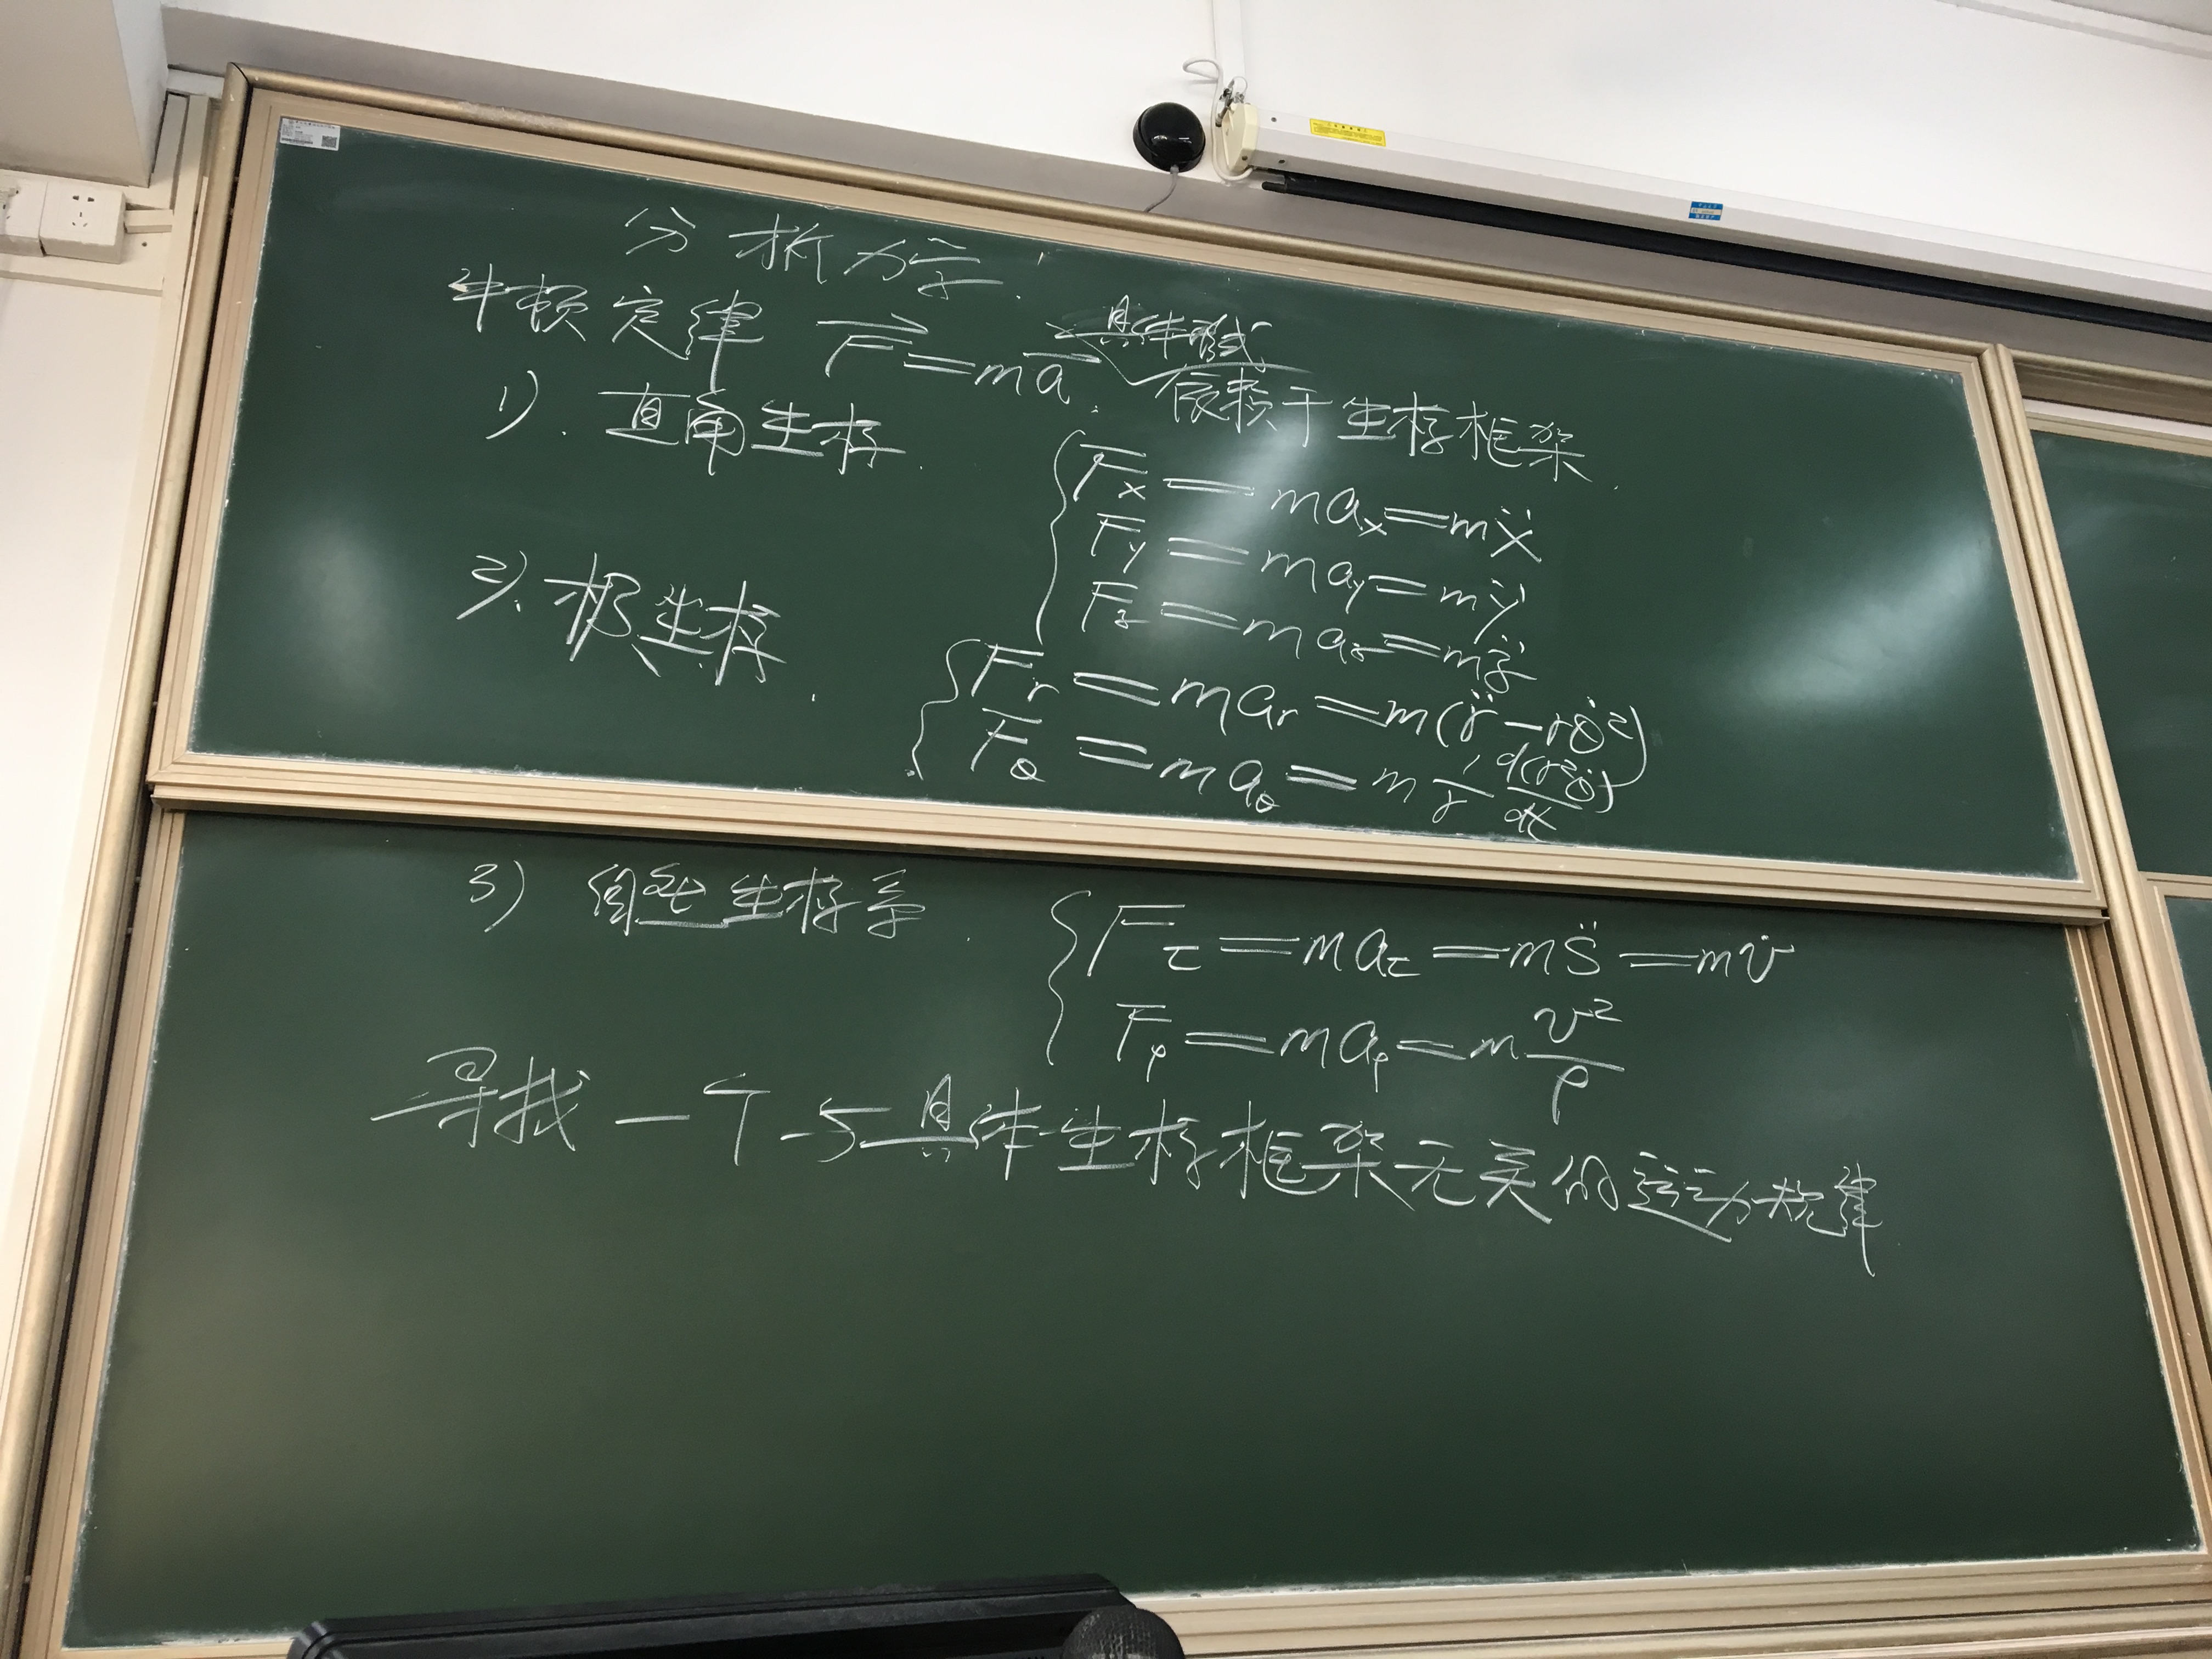 分析力学.
牛顿定律 F⃗=ma⃗. 具体形式
依赖于坐标框架.
1). 直角坐标.
Fx = max = mẍ
Fy = may = mÿ
Fz = maz = mz̈
2). 极坐标.
Fr = mar = m(r̈ - rθ̇²)
Fθ = maθ = m 1/r d(r²θ̇)/dt
3) 自然坐标系.
Fτ = maτ = ms̈ = mv̇
Fρ = maρ = m v²/ρ
寻找一个与具体坐标框架无关的运动规律